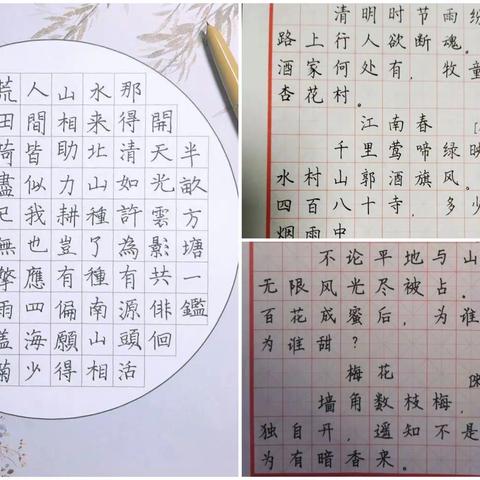 半畝方塘一鑑
開天光雲影共俳佪
那得清如許為有源頭活
水来北山種了種南山相
山相助力耕豈有偏願得
人間皆似我也應四海少
荒田荷盡已無擎雨蓋菊
清明时节雨纷
路上行人欲断魂。
酒家何处有，牧童
杏花村。
江南春
千里莺啼绿映
水村山郭酒旗风。
四百八十寺，多少
烟雨中
不论平地与山
无限风光尽被占。
百花成蜜后，为谁
为谁甜？
梅花
墙角数枝梅，
独自开，遥知不是
为有暗香来。